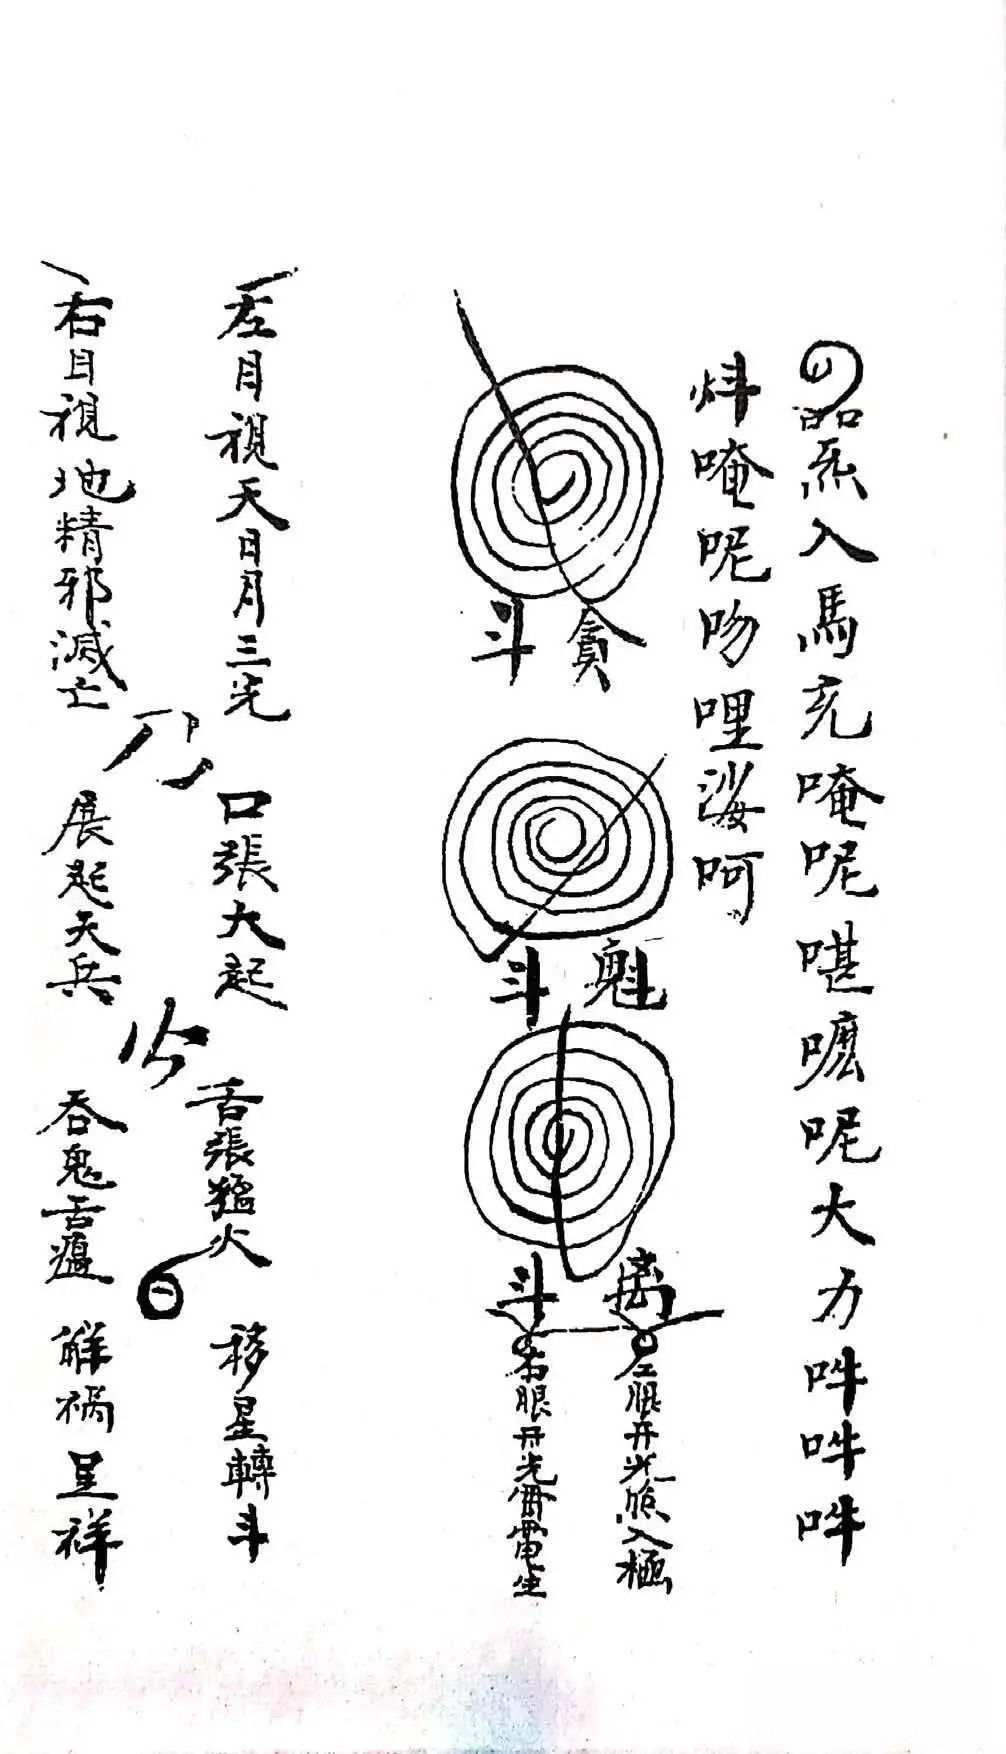 炁入馬充唵呢喋嚒呢大力吽吽吽
炓唵呢吻哩娑呵
斗貪
斗魁
斗
左眼开光照入極
右眼开光雷電生
左目視天日月三光
口張大起
舌張猛火
移星轉斗
右目視地精邪滅亡
展起天兵
吞鬼舌瘟
解禍呈祥